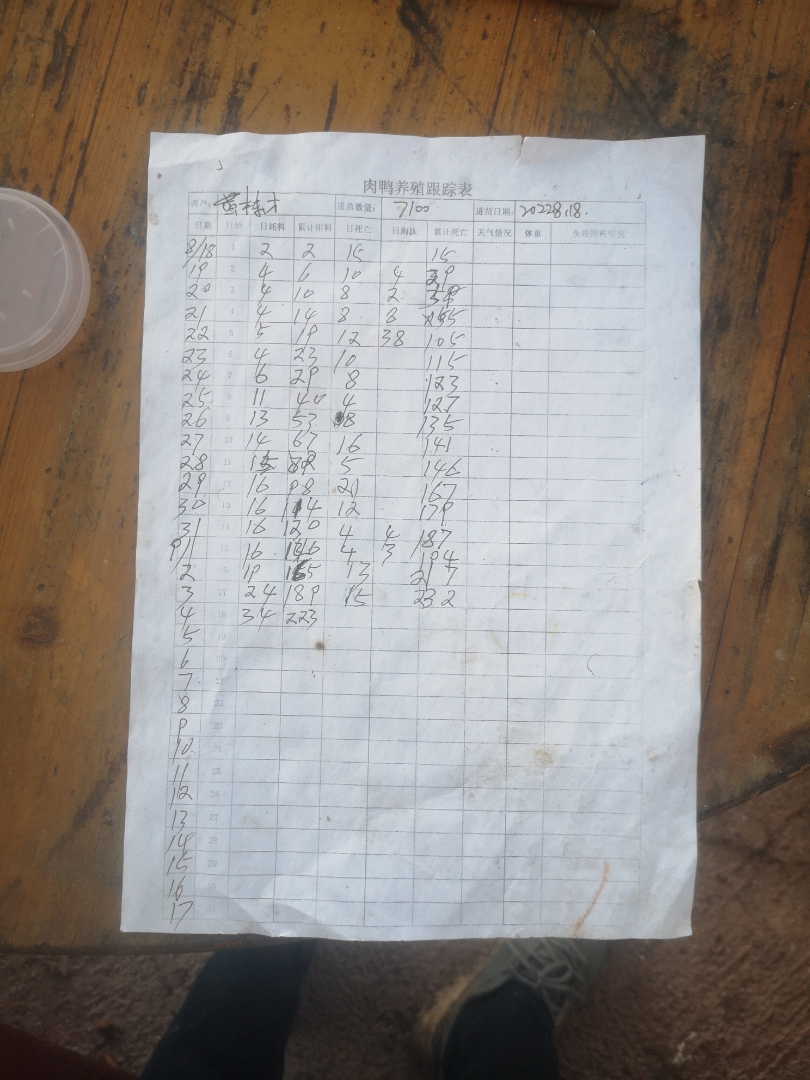 肉鸭养殖跟踪表
养户: 进苗数量: 7100 进苗日期: 20228.18.
日期 日龄 日耗料 累计用料 日死亡 日淘汰 累计死亡 天气情况 体重 免疫用药情况
8/18 1 2 2 15 15
19 2 4 6 10 4 29
20 3 4 10 8 2
21 4 4 14 8 55
22 5 5 19 12 38 105
23 6 4 23 10 115
24 7 6 29 8 123
25 8 11 40 4 127
26 9 13 53 8 135
27 10 14 67 16 141
28 11 15 5 146
29 12 16 98 21 167
30 13 16 114 12 179
31 14 16 120 4 4 187
9/1 15 16 4 3 194
2 16 19 165 13 217
3 17 24 189 15 232
4 18 34 223
5 19
6 20
7 21
8 22
9 23
10 24
11 25
12 26
13 27
14 28
15 29
16 30
17 31